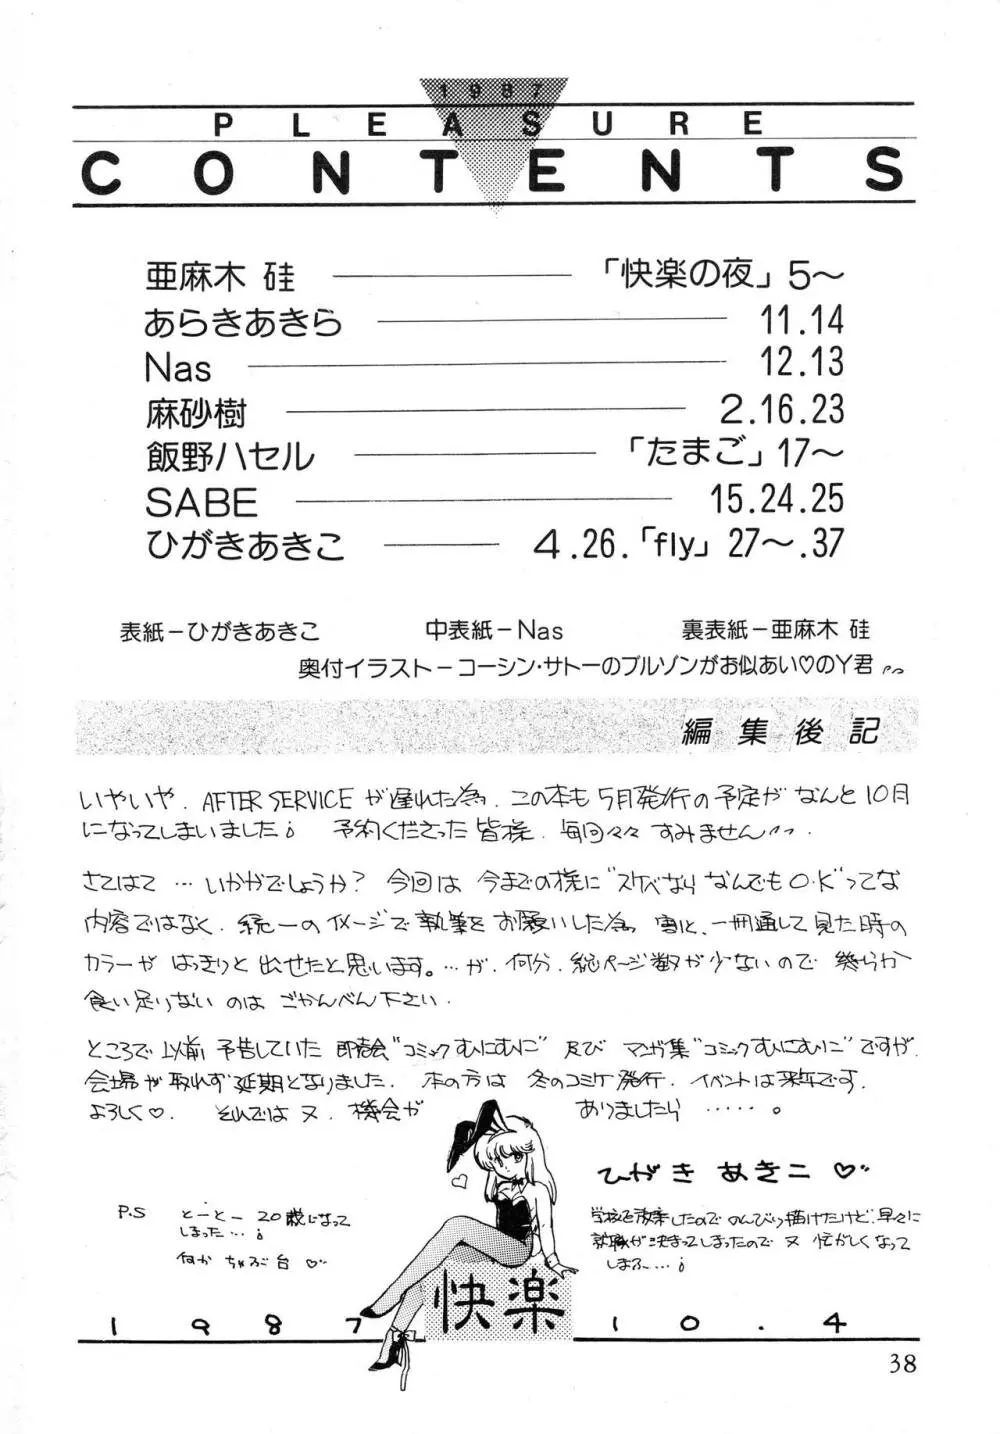 1987
PLEASURE
CONTENTS
亜麻木 硅 ― 「快楽の夜」5〜
あらきあきら ― 11.14
Nas ― 12.13
麻砂樹 ― 2.16.23
飯野ハセル ― 「たまご」17〜
SABE ― 15.24.25
ひがきあきこ ― 4.26.「fly」27〜.37
表紙−ひがきあきこ 中表紙−Nas 裏表紙−亜麻木 硅
奥付イラスト−コーシン・サトーのブルゾンがお似あい♡のY君
編集後記
いやいや、AFTER SERVICEが遅れた為、この本も5月発行の予定がなんと10月
になってしまいました。予約くださった皆様、毎回々々すみません
さてはて…いかがでしょうか?今回は今までの様に"スケベならなんでもO.K"ってな
内容ではなく、統一のイメージで執筆をお願いした為、一冊通して見た時の
カラーがはっきりと出せたと思います。…が、何分、総ページ数が少ないので幾らか
食い足りないのはごかんべん下さい.
ところで以前予告していた即売会"コミックむにむに"及びマンガ集"コミックむにむに"ですが、
会場が取れず延期となりました.本の方は冬のコミケ発行.イベントは来年です.
よろしく♡.それではヌ、機会がありましたら……。
ひがきあきこ♡
P.S とーとー20歳になって
しまった…¡
何かちゃぶ台♡
学校を放棄したのでのんびり描けたけど、早々に
就職が決まってしまったのでヌ忙がしくなって
しまふ…¡
快楽
1987 10.4
38